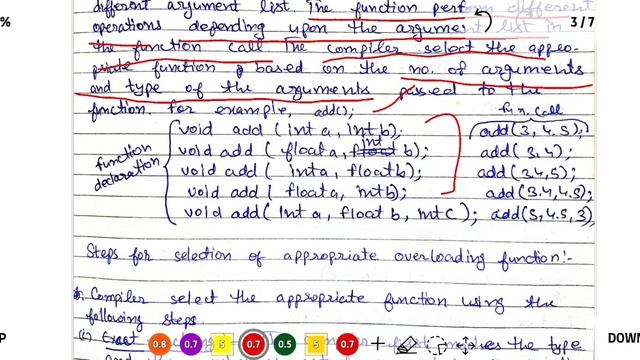 different argument list. The function perf
operations depending upon the argument list in
the function call. The compiler select the appro-
priate function based on the no. of arguments
and type of the arguments passed to the
function. For example, add();
fn. call
function declaration
void add (int a, int b); add(3, 4.5);
void add (float a, int b); add(3, 4);
void add (int a, float b); add(3.4, 5);
void add (float a, int b); add(3.4, 4.5);
void add (int a, float b, int c); add(5, 4.5, 3);
Steps for selection of appropriate overloading function:-
Compiler select the appropriate function using the
following steps
(i) Exact the type
3 / 7
%
P
DOW
0.8 0.7 5 0.7 0.5 5 0.7